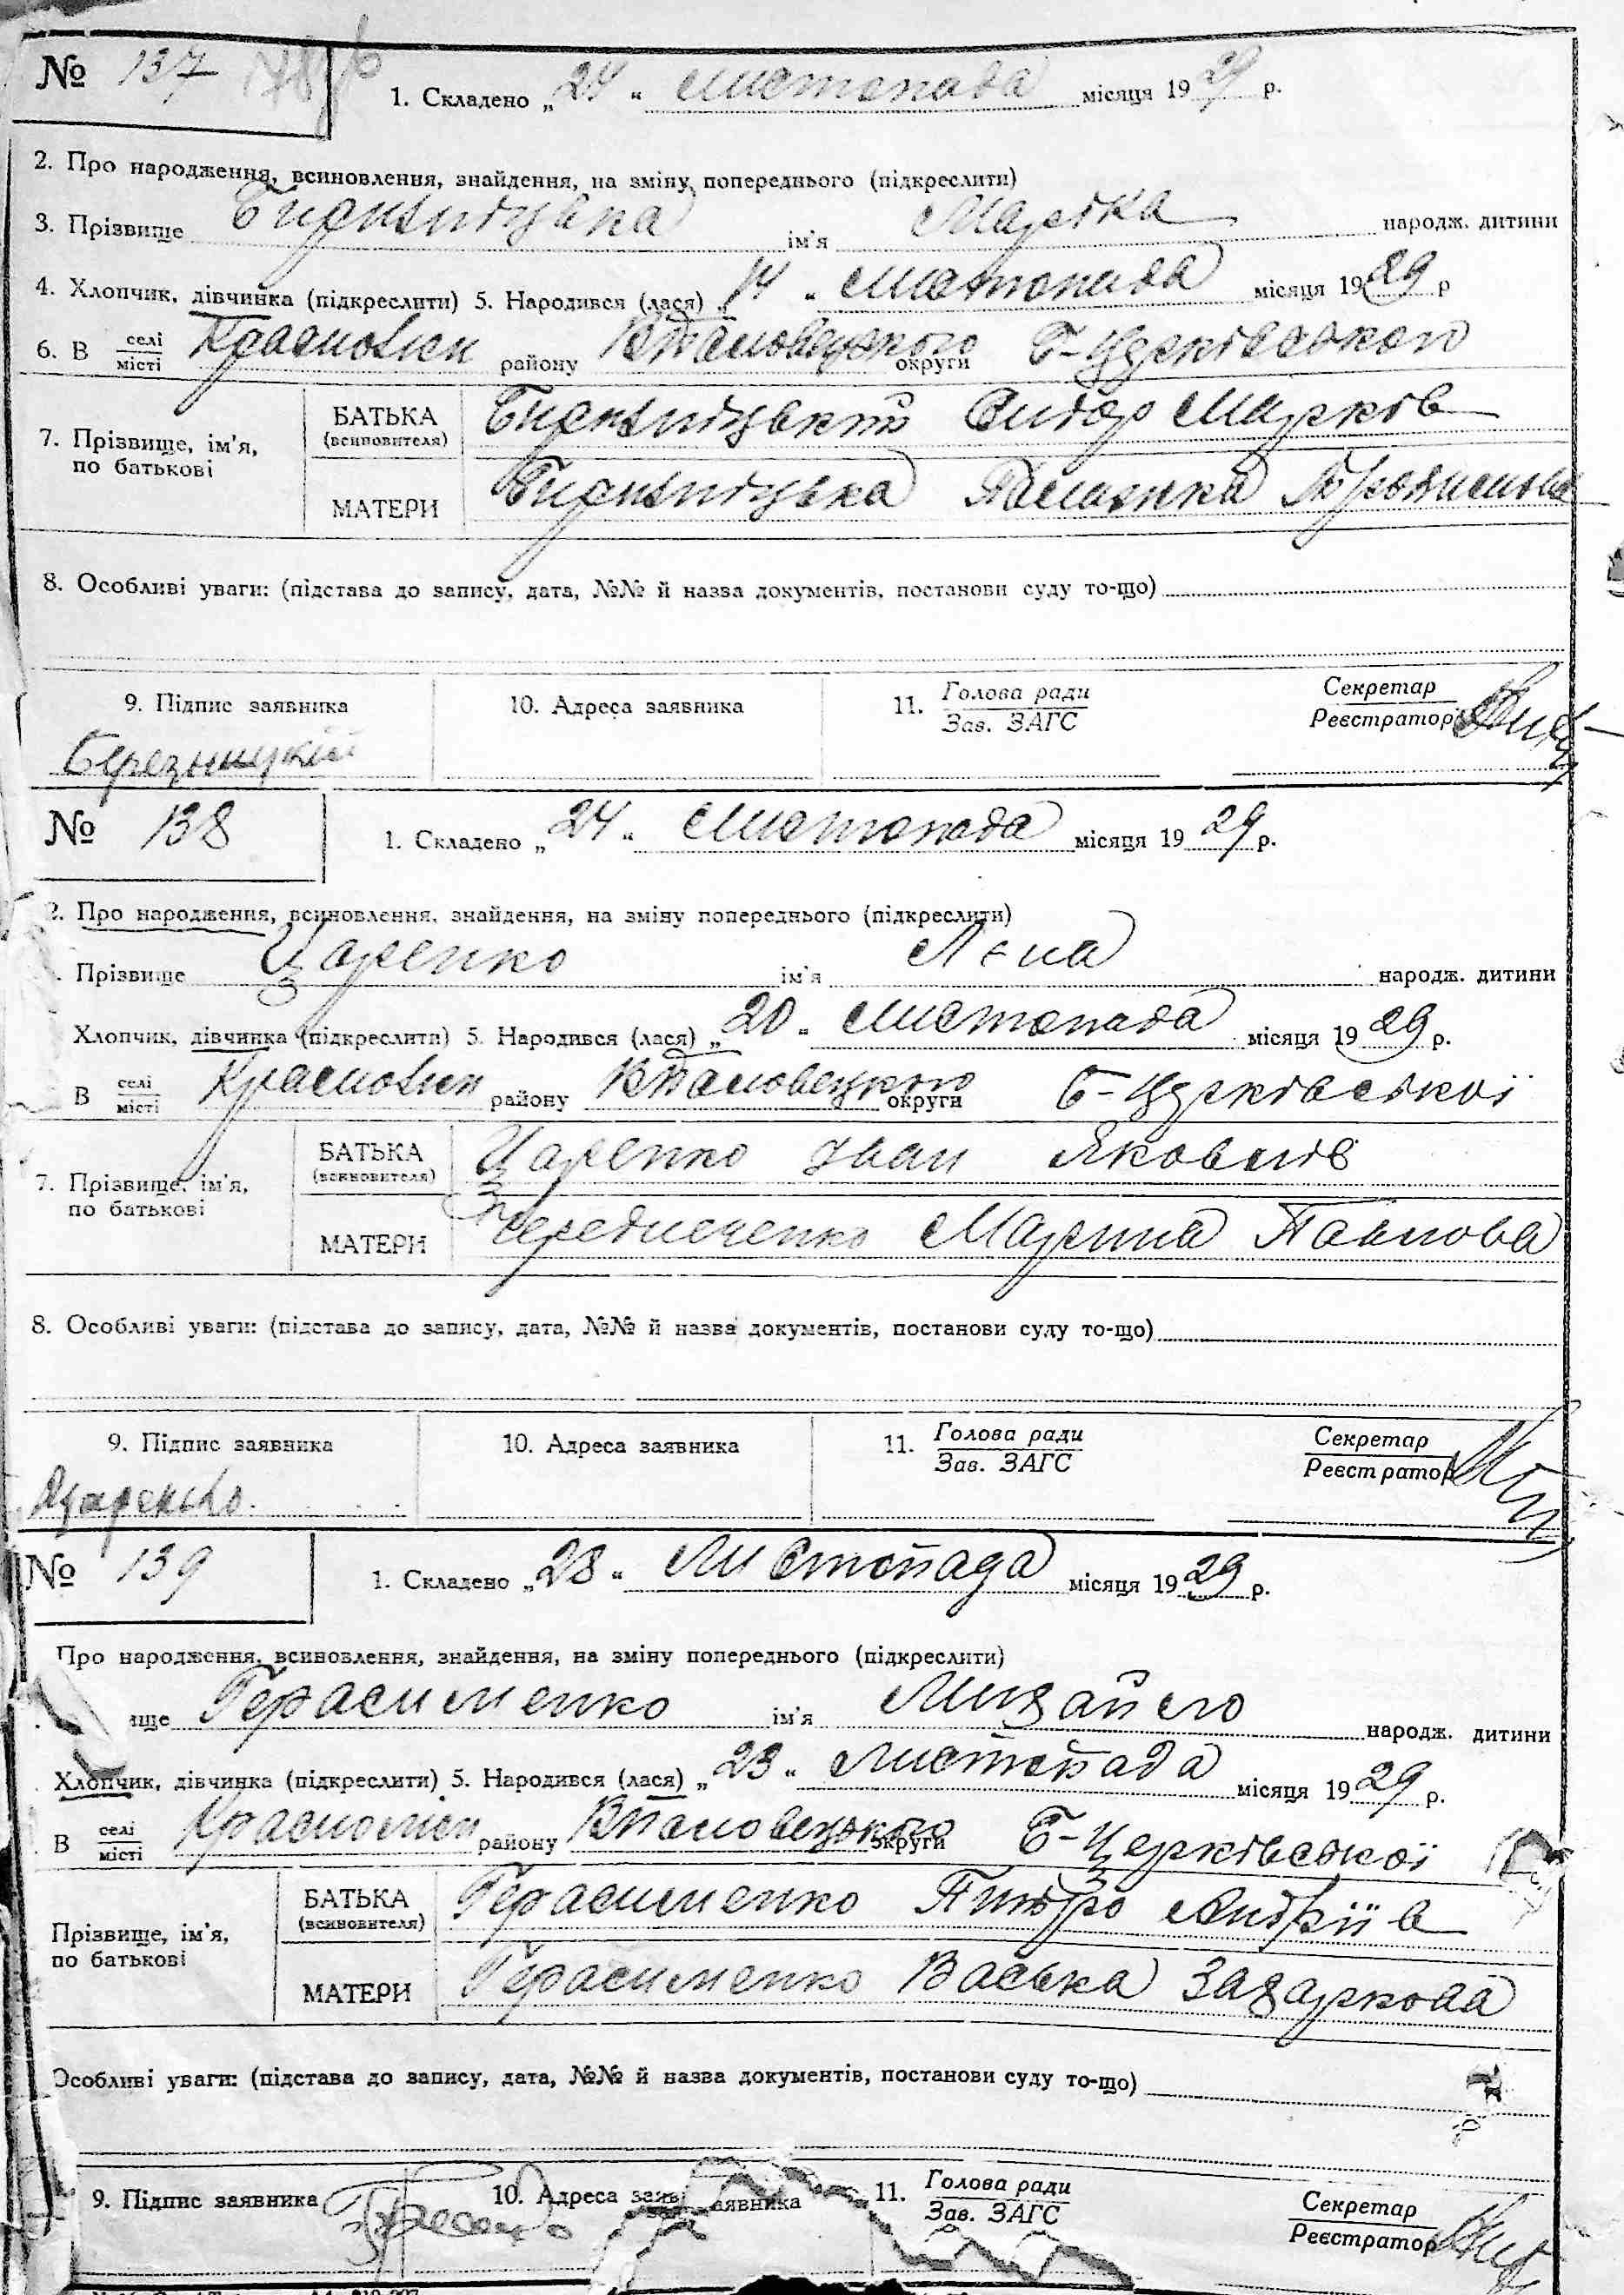 № 137
1. Складено „24“ листопада місяця 1929 р.
2. Про народження, всиновлення, знайдення, на зміну попереднього (підкреслити)
3. Прізвище ім'я народж. дитини
4. Хлопчик, дівчинка (підкреслити) 5. Народився (лася) „14“ листопада місяця 1929 р
6. В селі/місті району округи Б-Церківської
7. Прізвище, ім'я, по батькові
БАТЬКА (всиновителя) Марків
МАТЕРИ
8. Особливі уваги: (підстава до запису, дата, №№ й назва документів, постанови суду то-що)
9. Підпис заявника 10. Адреса заявника 11. Голова ради/Зав. ЗАГС Секретар/Реєстратор
№ 138
1. Складено „24“ листопада місяця 1929 р.
2. Про народження, всиновлення, знайдення, на зміну попереднього (підкреслити)
Прізвище Царенко ім'я Лєна народж. дитини
Хлопчик, дівчинка (підкреслити) 5. Народився (лася) „20“ листопада місяця 1929 р.
В селі/місті району округи Б-Церківської
7. Прізвище, ім'я, по батькові
БАТЬКА (всиновителя) Царенко Іван Яковлів
МАТЕРИ Чередниченко Марина Павлова
8. Особливі уваги: (підстава до запису, дата, №№ й назва документів, постанови суду то-що)
9. Підпис заявника 10. Адреса заявника 11. Голова ради/Зав. ЗАГС Секретар/Реєстратор
Царенко.
№ 139
1. Складено „28“ Листопада місяця 1929 р.
Про народження, всиновлення, знайдення, на зміну попереднього (підкреслити)
ище Герасименко ім'я Михайло народж. дитини
Хлопчик, дівчинка (підкреслити) 5. Народився (лася) „23“ Листопада місяця 1929 р.
В селі/місті району округи Б-Церківської
Прізвище, ім'я, по батькові
БАТЬКА (всиновителя) Герасименко Андріїв
МАТЕРИ Герасименко Васька Захаркова
Особливі уваги: (підстава до запису, дата, №№ й назва документів, постанови суду то-що)
9. Підпис заявника 10. Адреса заяв аявника 11. Голова ради/Зав. ЗАГС Секретар/Реєстратор